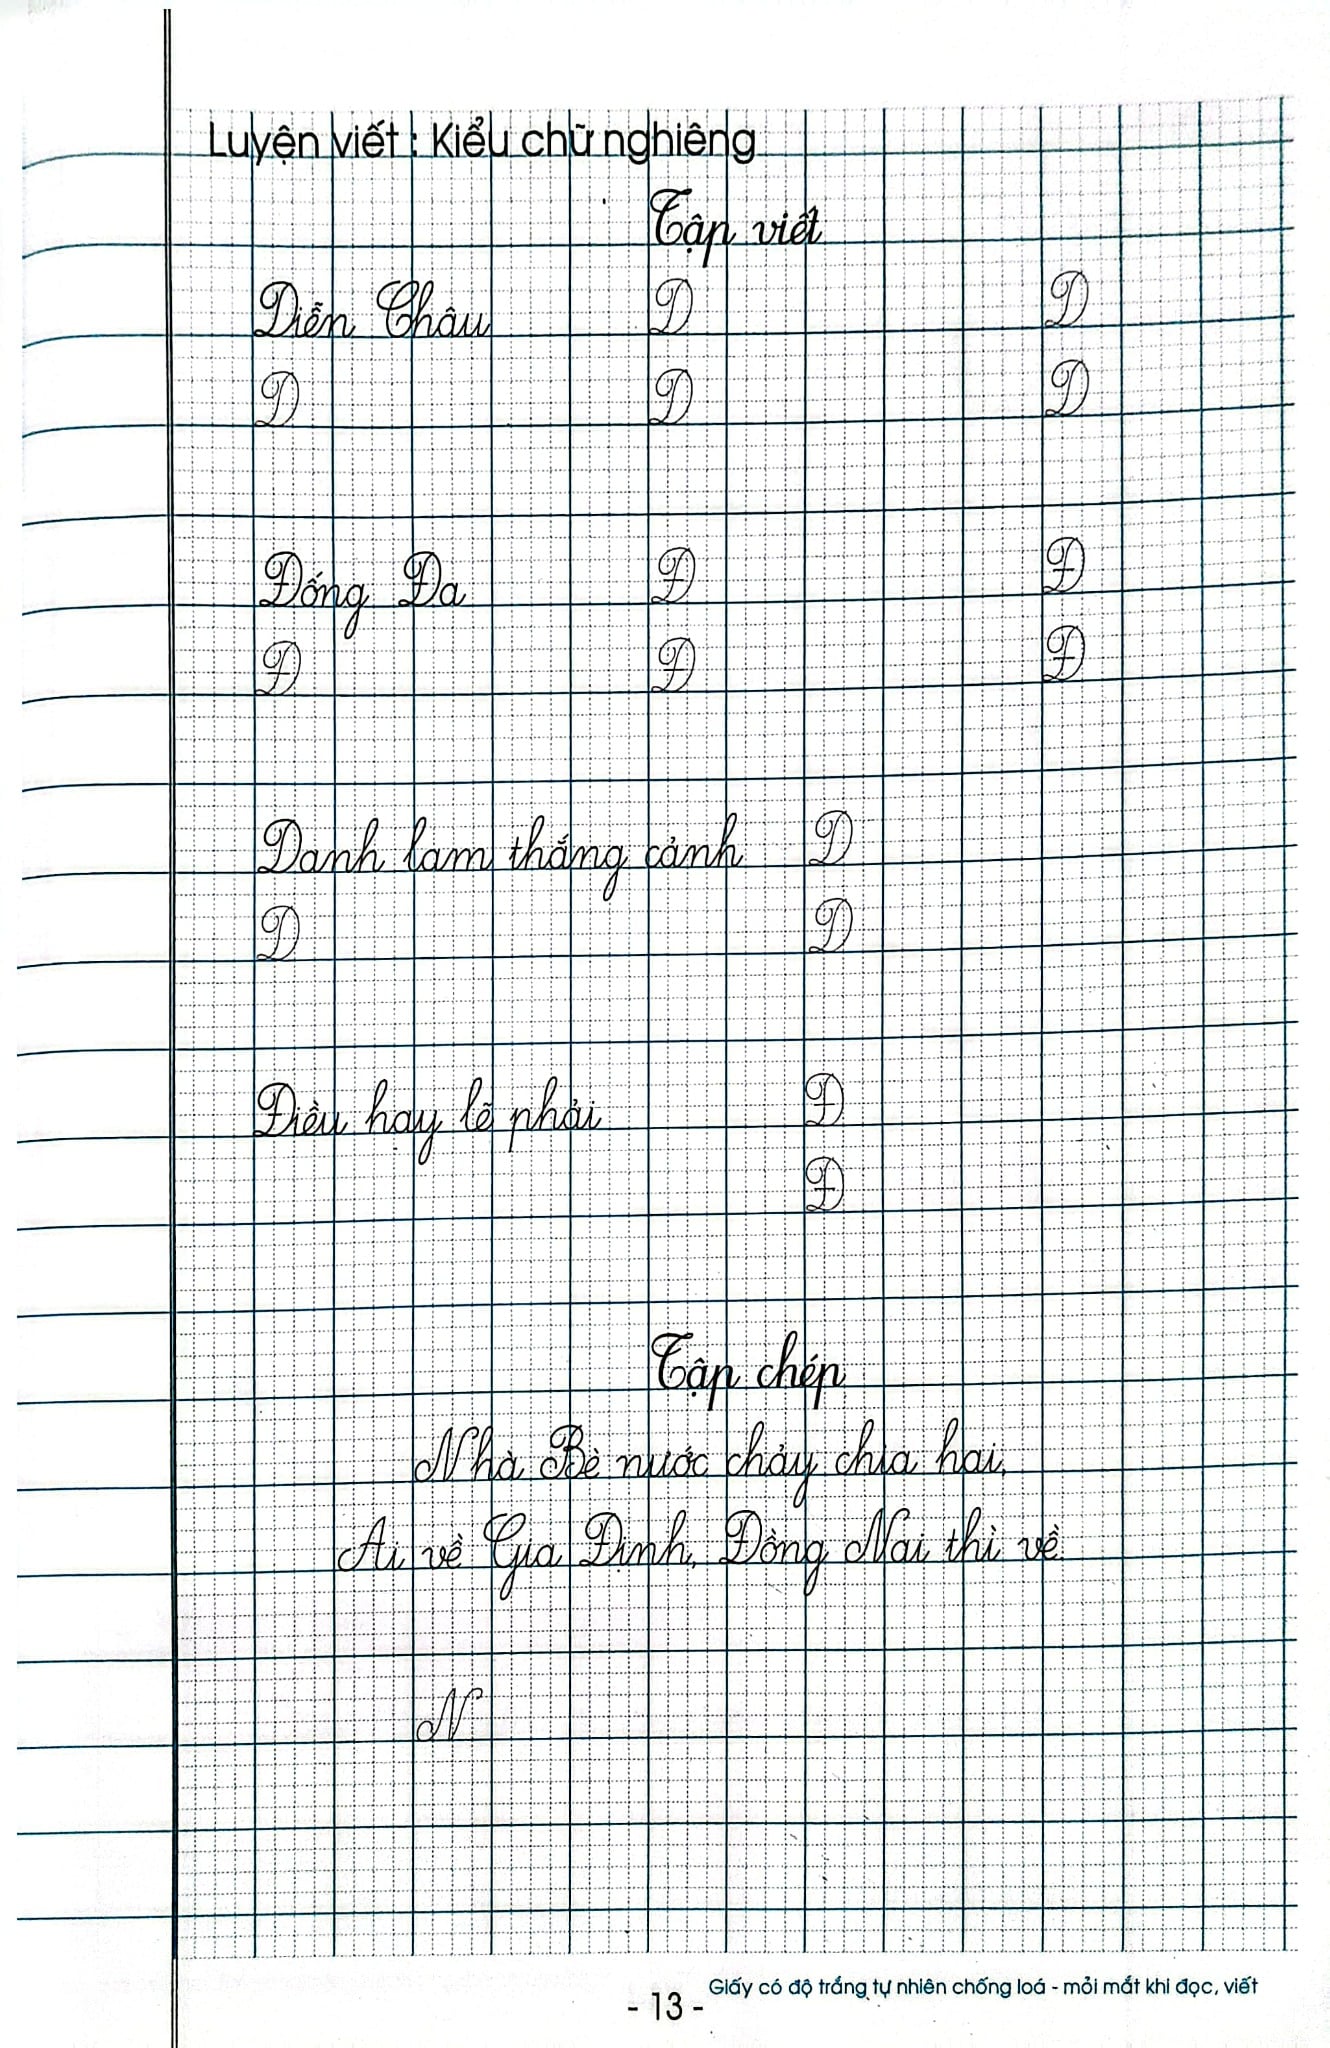 Luyện viết : Kiểu chữ nghiêng
Tập viết
Diễn Châu D D
D D D
Đống Đa Đ Đ
Đ Đ Đ
Danh lam thắng cảnh D
D D
Điều hay lẽ phải Đ
Đ
Tập chép
Nhà Bè nước chảy chia hai,
Ai về Gia Định, Đồng Nai thì về
N
Giấy có độ trắng tự nhiên chống loá - mỏi mắt khi đọc, viết
- 13 -